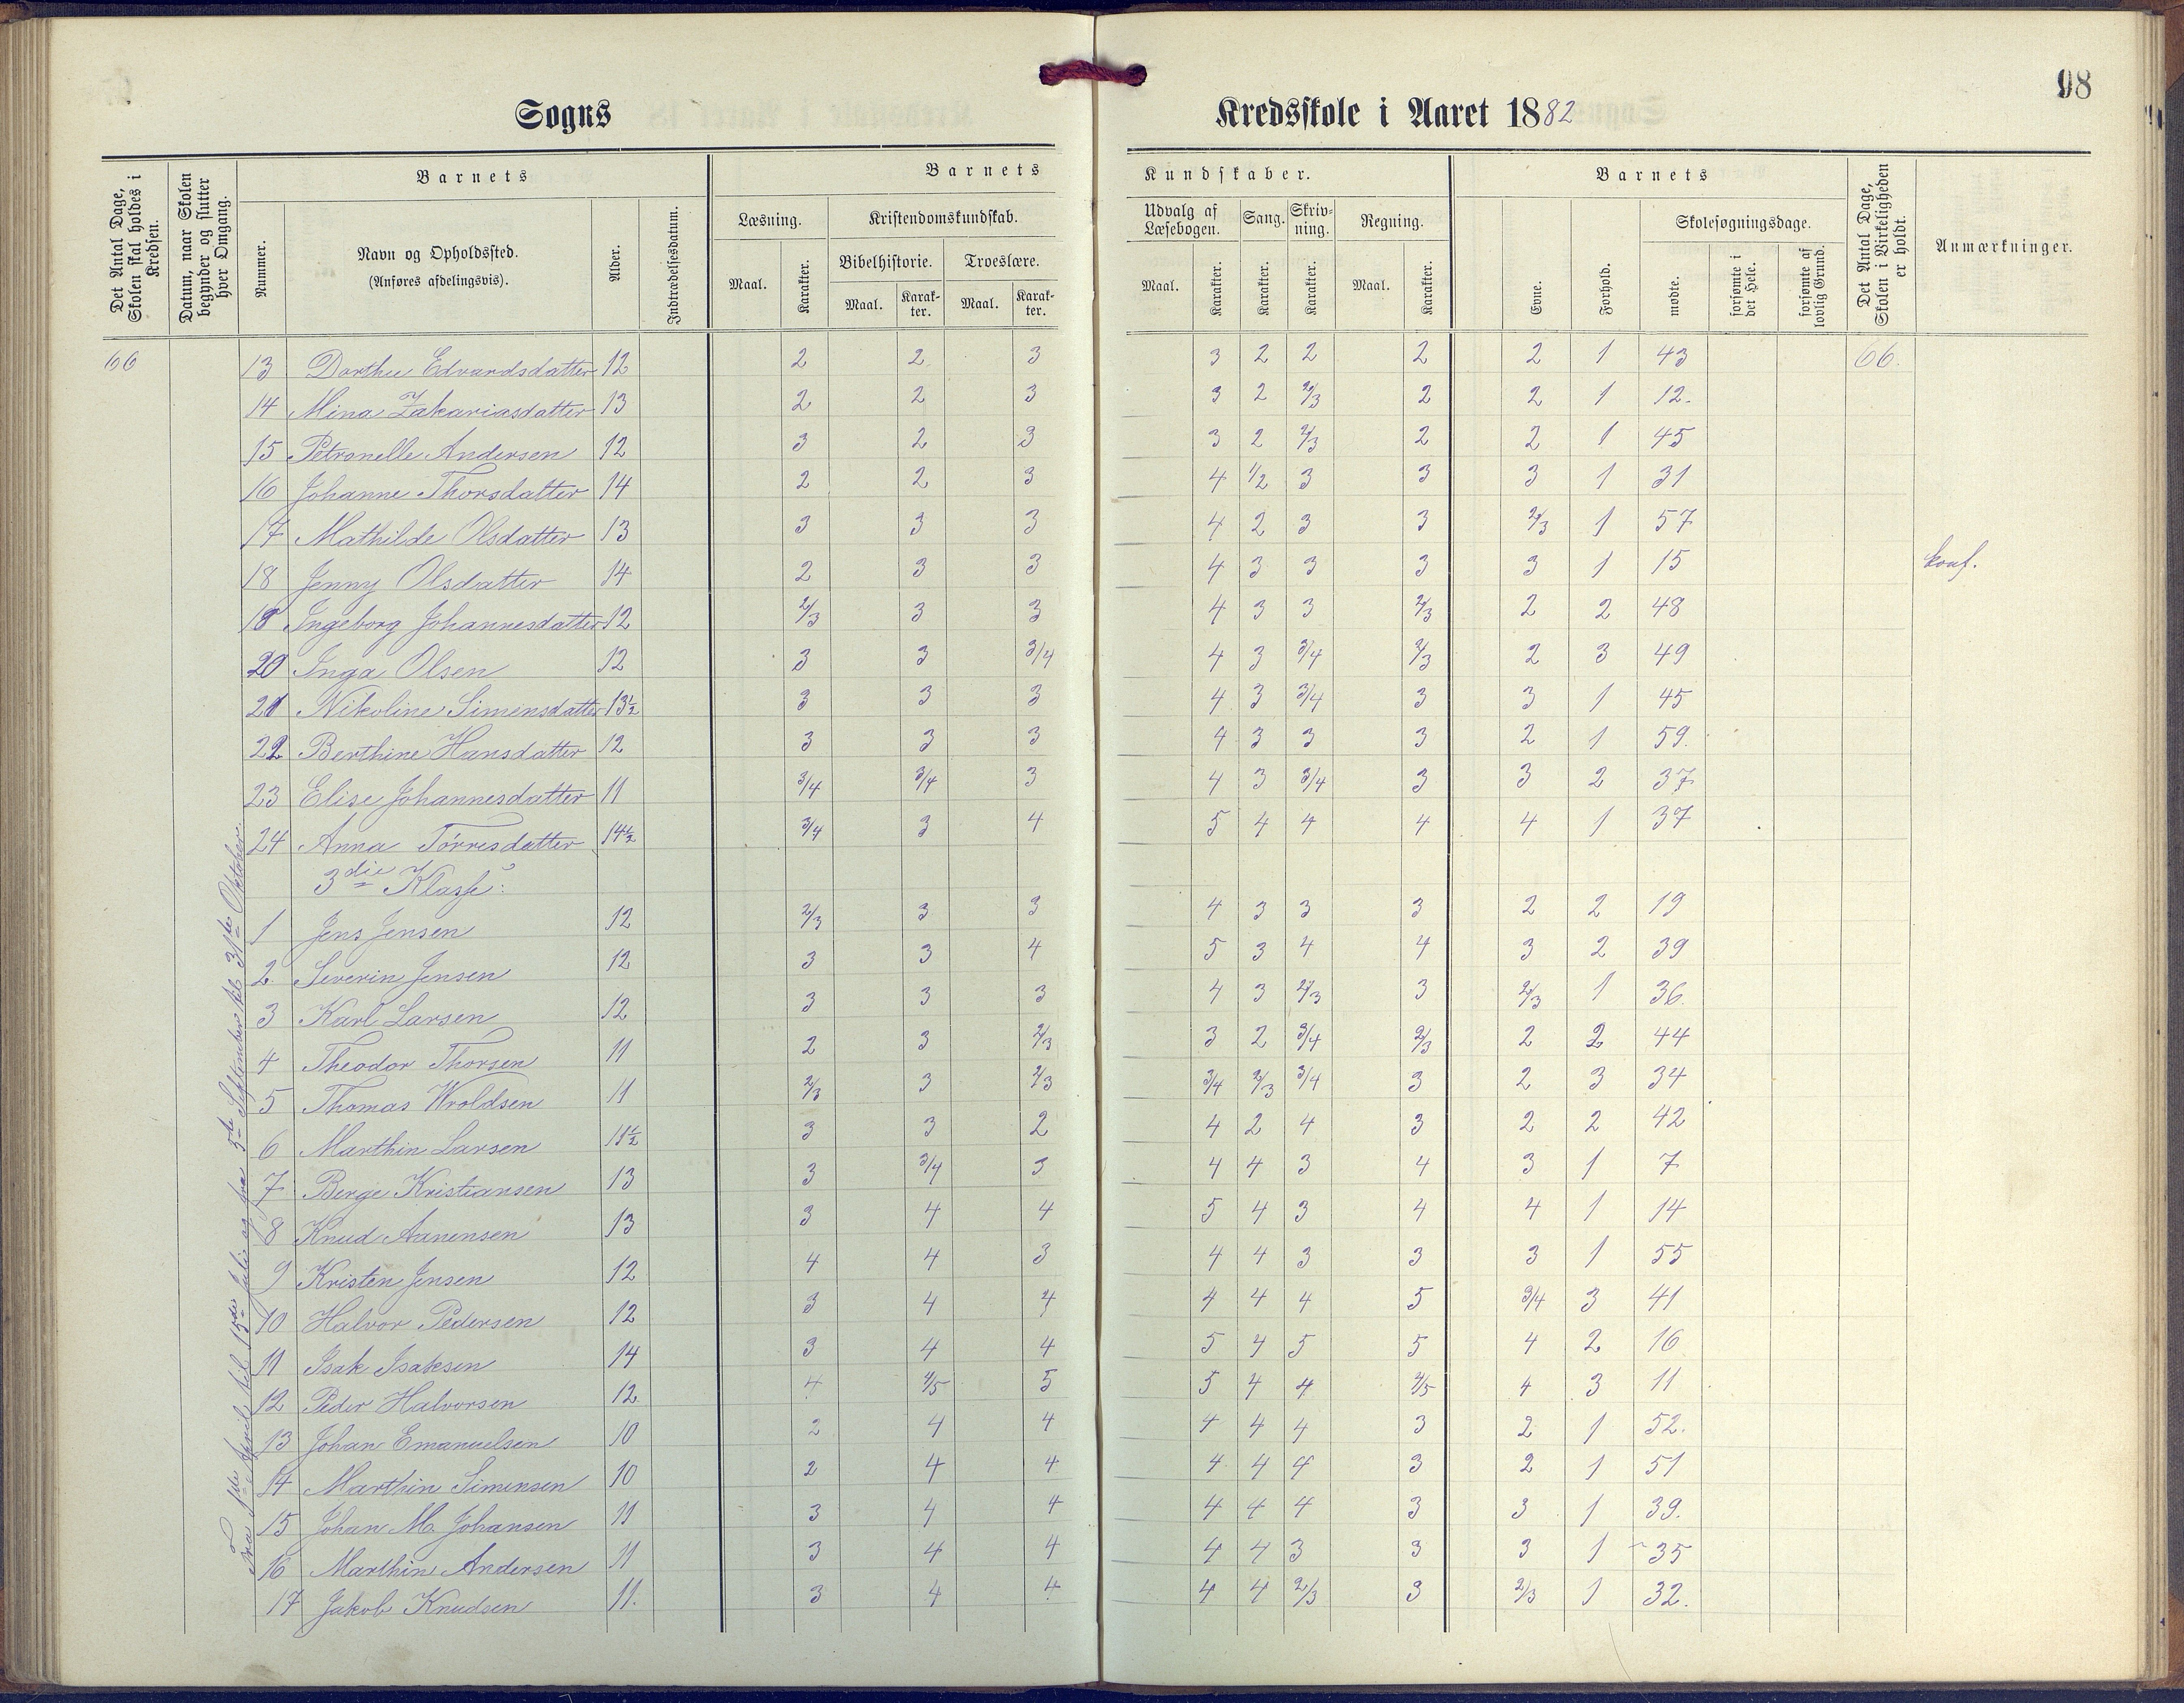 98
Sogns Kredsskole i Aaret 1882
Det Antal Dage, Skolen skal holdes i Kredsen.
Datum, naar Skolen begynder og slutter hver Omgang.
Barnets
Nummer.
Navn og Opholdssted. (Anføres afdelingsvis).
Alder.
Indtrædelsesdatum.
Barnets Kundskaber.
Læsning. Kristendomskundskab. Udvalg af Læsebogen. Sang. Skrivning. Regning.
Bibelhistorie. Troeslære.
Maal. Karakter. Maal. Karakter. Maal. Karakter. Maal. Karakter. Karakter. Karakter. Maal. Karakter.
Barnets
Evne. Forhold. Skolesøgningsdage.
mødte. forsømte i det Hele. forsømte af lovlig Grund.
Det Antal Dage, Skolen i Virkeligheden er holdt.
Anmærkninger.
66 13 Dorthe Edvardsdatter 12 2 2 3 3 2 2 2 2 1 43 66.
14 Mina Zakariasdatter 13 2 2 3 3 2 2/3 2 2 1 12.
15 Petronelle Andersen 12 3 2 3 3 2 2/3 2 2 1 45
16 Johanne Thorsdatter 14 2 2 3 4 1/2 3 3 3 1 31
17 Mathilde Olsdatter 13 3 3 3 4 2 3 3 2/3 1 57
18 Jenny Olsdatter 14 2 3 3 4 3 3 3 3 1 15 konf.
19 Ingeborg Johannesdatter 12 2/3 3 3 4 3 3 2/3 2 2 48
20 Inga Olsen 12 3 3 3/4 4 3 3/4 2/3 2 3 49
21 Nikoline Simensdatter 13½ 3 3 3 4 3 3/4 3 3 1 45
22 Berthine Hansdatter 12 3 3 3 4 3 3 3 2 1 59.
23 Elise Johannesdatter 11 3/4 3/4 3 4 3 3/4 3 3 2 37
24 Anna Tórresdatter 14½ 3/4 3 4 5 4 4 4 4 1 37
3die Klasse:
1 Jens Jensen 12 2/3 3 3 4 3 3 3 2 2 19
2. Severin Jensen 12 3 3 4 5 3 4 4 3 2 39
3 Karl Larsen 12 3 3 3 4 3 2/3 3 2/3 1 36.
4 Theodor Thorsen 11 2 3 2/3 3 2 3/4 2/3 2 2 44
5 Thomas Wroldsen 11 2/3 3 2/3 3/4 2/3 3/4 3 2 3 34
6 Marthin Larsen 11½ 3 3 2 4 2 4 3 2 2 42
7 Berge Kristiansen 13 3 3/4 3 4 4 3 4 3 1 7
8 Knud Aanensen 13 3 4 4 5 4 3 4 4 1 14
9 Kristen Jensen 12 4 4 3 4 4 3 3 3 1 55
10 Halvor Pedersen 12 3 4 4 4 4 4 5 3/4 3 41
11 Isak Isaksen 14 3 4 4 5 4 5 5 4 2 16
12 Peder Halvorsen 12. 4 4/5 5 5 4 4 4/5 4 3 11
13 Johan Emanuelsen 10 2 4 4 4 4 4 3 2 1 52.
14 Marthin Simensen 10 2 4 4 4 4 4 3 2 1 51
15 Johan M. Johansen 11 3 4 4 4 4 4 3 3 1 39.
16 Marthin Andersen 11 3 4 4 4 4 3 3 3 1 35
17 Jakob Knudsen 11. 3 4 4 4 4 2/3 3 2/3 1 32.
April til 15de Juli og fra 5te September til 31te Oktober.